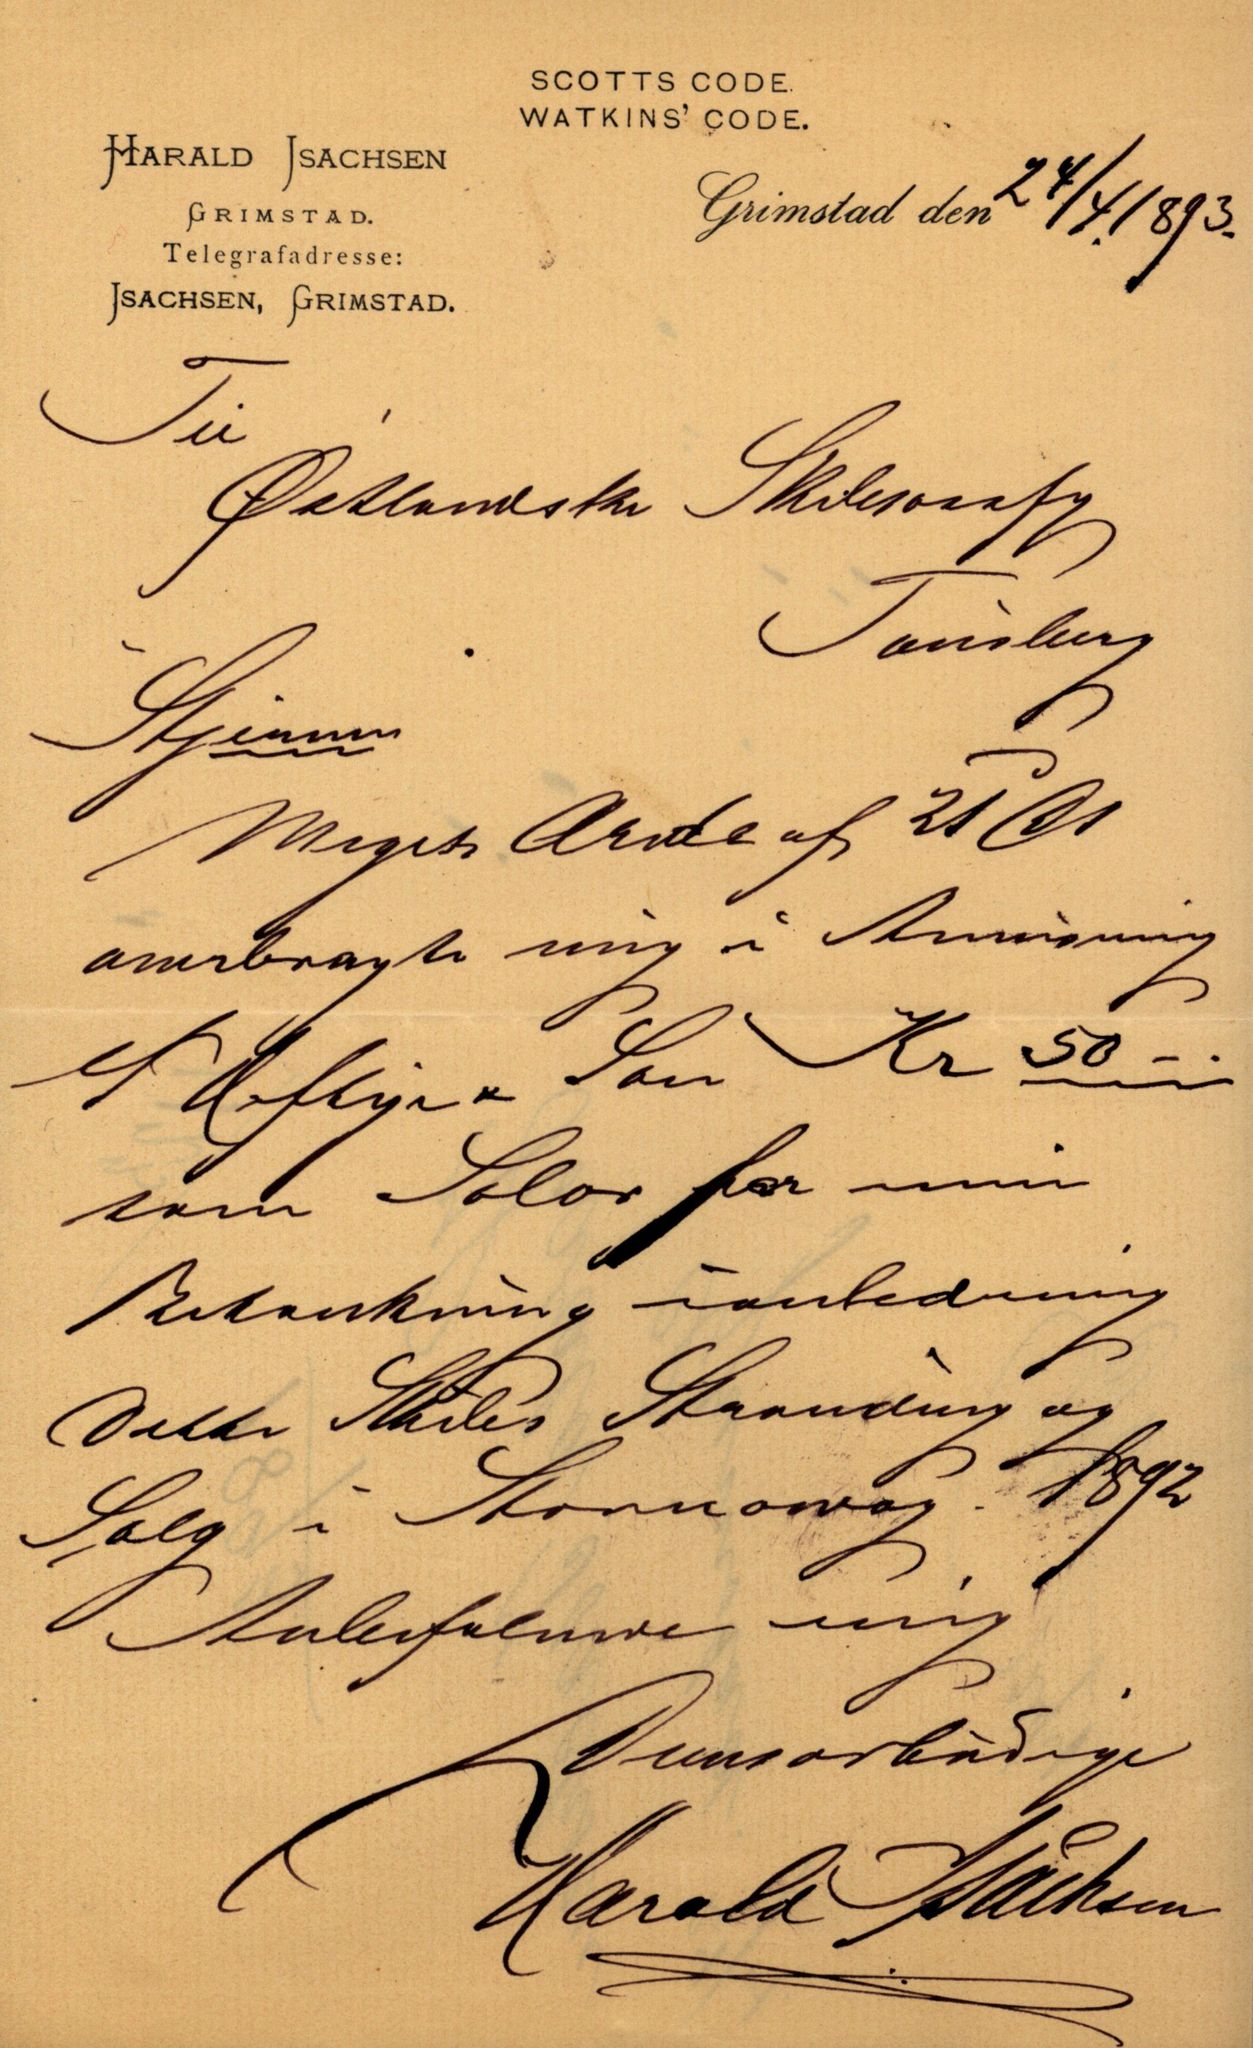 SCOTTS CODE.
WATKINS' CODE.
HARALD ISACHSEN
GRIMSTAD.
Telegrafadresse:
ISACHSEN, GRIMSTAD.
Grimstad den 24/4. 1893.
Til
Østlandske Skibsassfg
Tønsberg
"Stjernen"
Meget Ærede af 21 ds
overbragte mig i Anvisning
Heftye & Søn Kr 50 –
som Salær for min
Betænkning ianledning
dette Skibs Stranding og
Salg i Stornoway 1892
Anbefalende mig
Deres ærbødige
Harald Isachsen